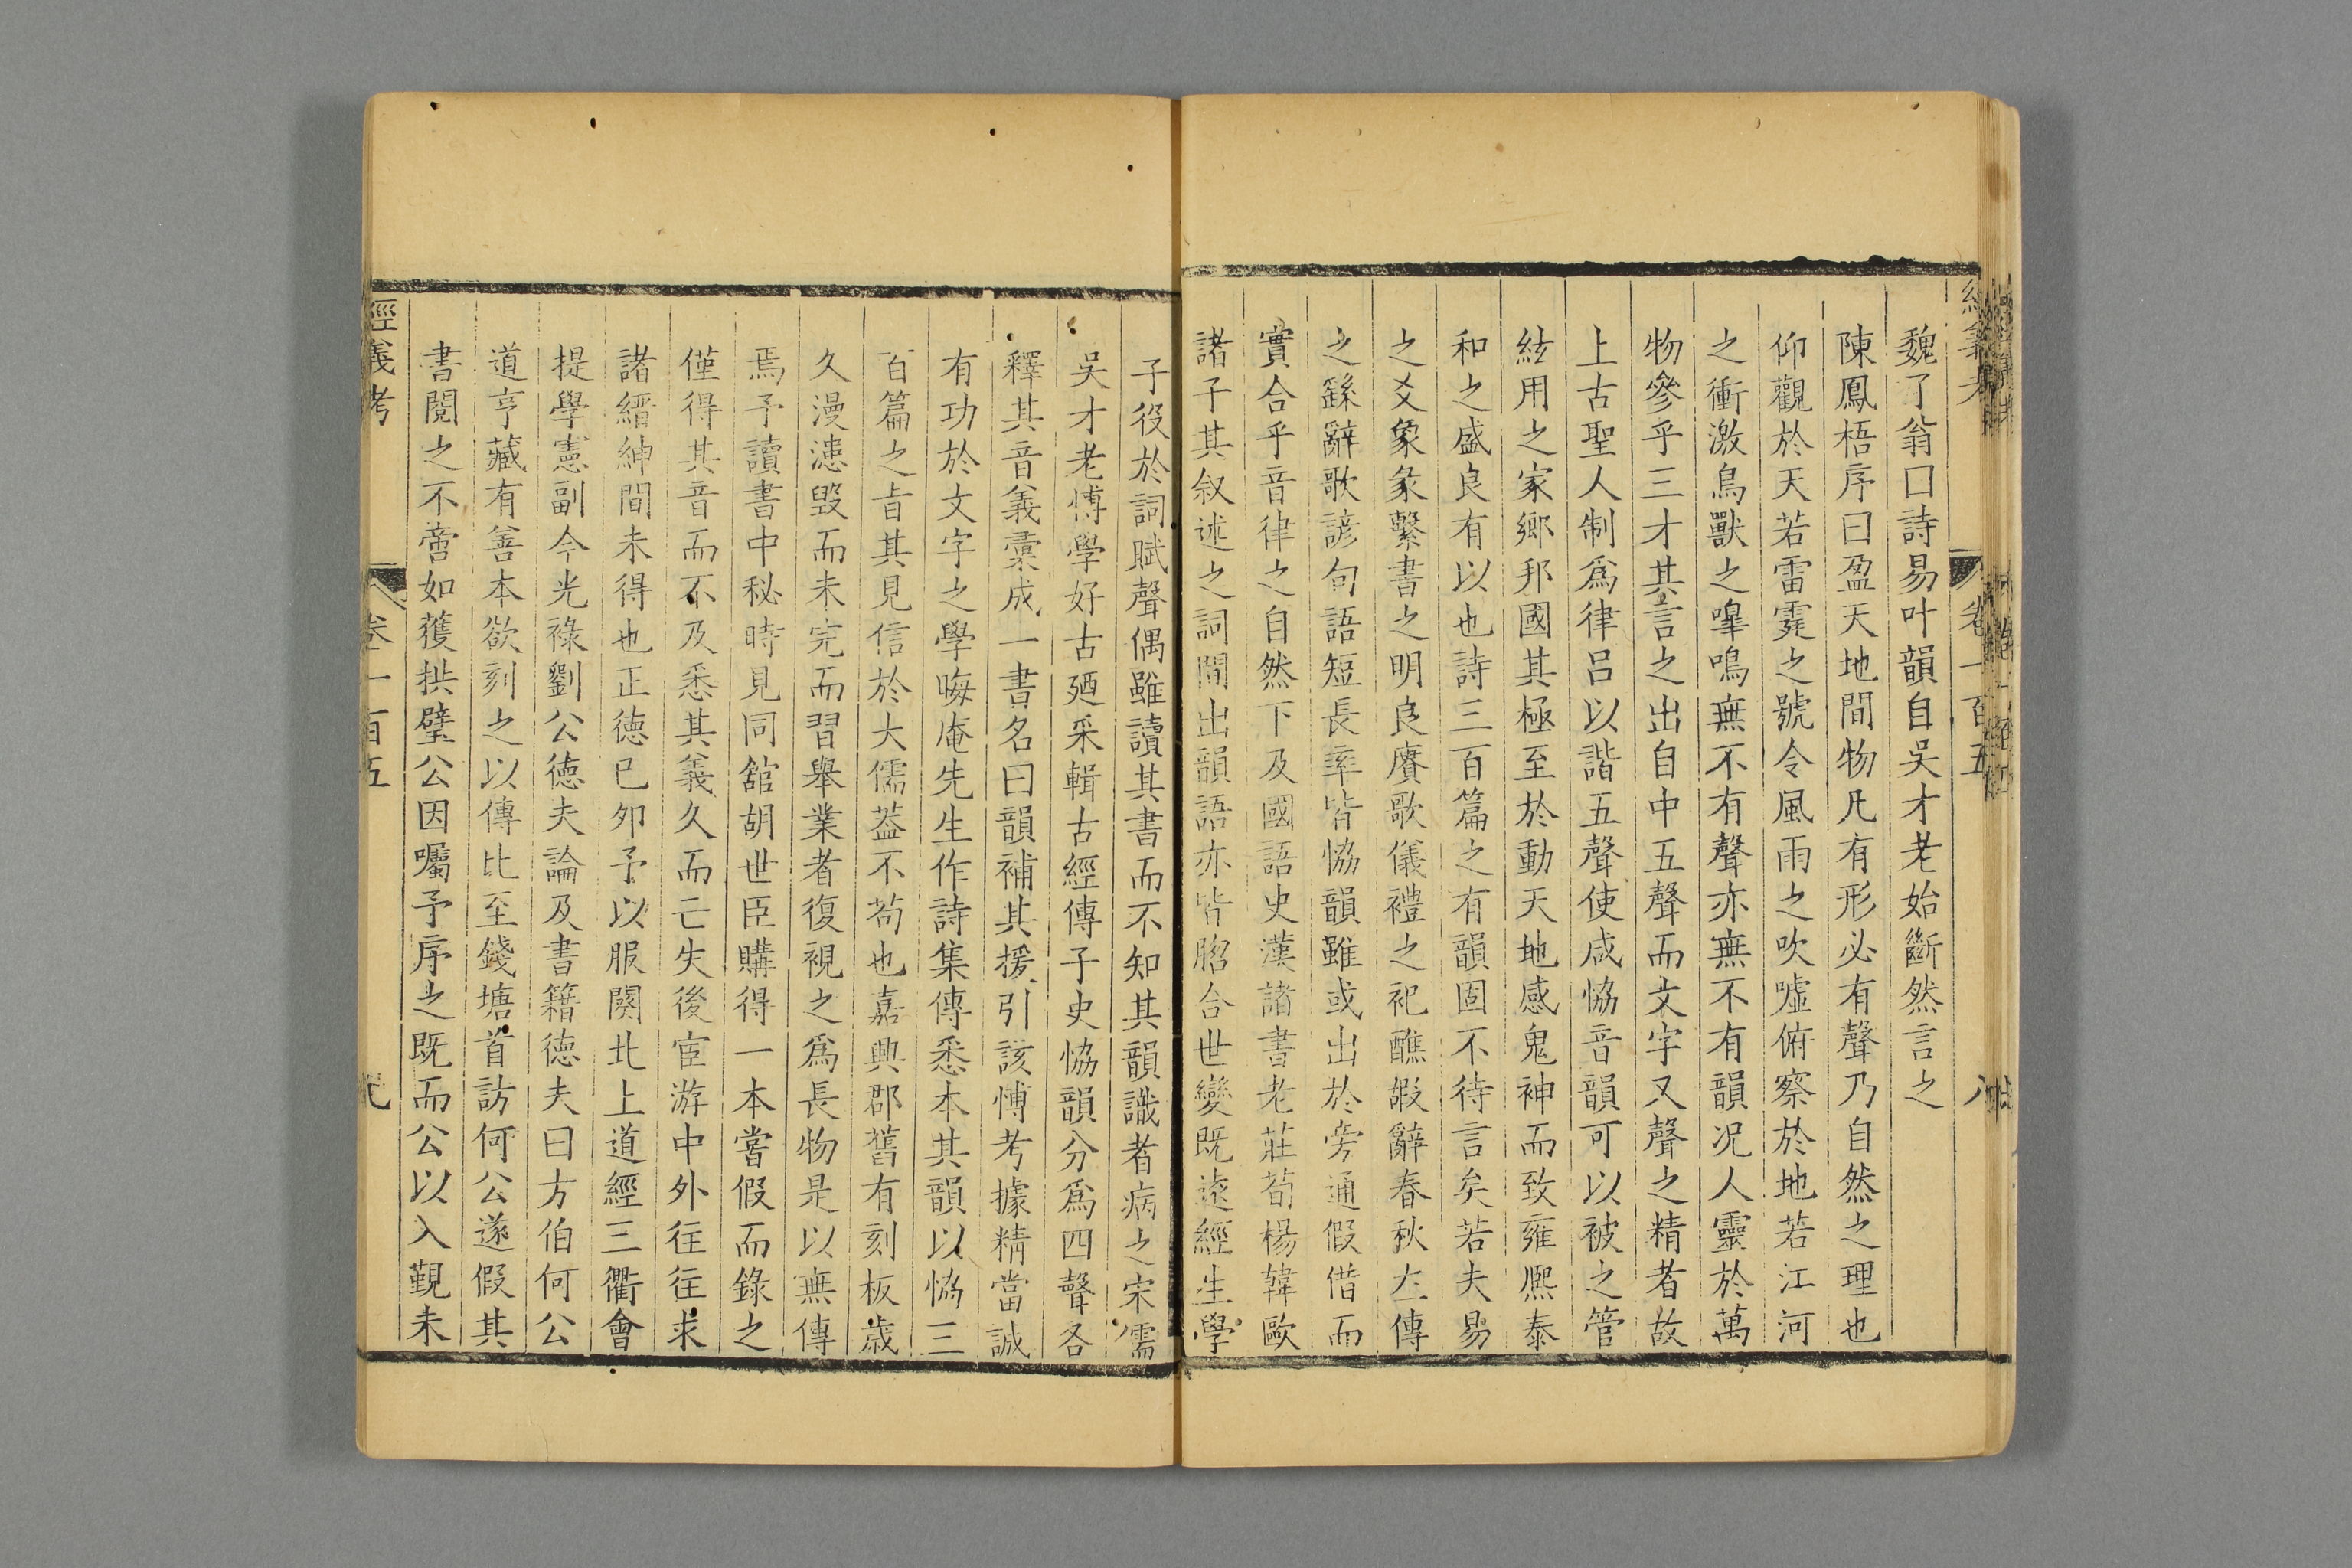 經義考 卷一百五 八
魏了翁曰詩易叶韻自吳才老始斷然言之
陳鳳梧序曰盈天地間物凡有形必有聲乃自然之理也
仰觀於天若雷霆之號令風雨之吹噓俯察於地若江河
之衝激鳥獸之嘷鳴無不有聲亦無不有韻况人靈於萬
物參乎三才其言之出自中五聲而文字又聲之精者故
上古聖人制爲律呂以諧五聲使咸恊音韻可以被之管
絃用之家鄉邦國其極至於動天地感鬼神而致雍熈泰
和之盛良有以也詩三百篇之有韻固不待言矣若夫易
之爻象彖繫書之明良賡歌儀禮之祀醮嘏辭春秋左傳
之繇辭歌諺句語短長率皆恊韻雖或出於旁通假借而
實合乎音律之自然下及國語史漢諸書老莊荀楊韓歐
諸子其叙述之詞間出韻語亦皆脗合世變既遠經生學
子役於詞賦聲偶雖讀其書而不知其韻識者病之宋儒
吳才老博學好古廼采輯古經傳子史恊韻分爲四聲各
釋其音義彙成一書名曰韻補其援引該博考據精當誠
有功於文字之學晦庵先生作詩集傳悉本其韻以恊三
百篇之旨其見信於大儒葢不苟也嘉興郡舊有刻板歲
久漫漶毀而未完而習舉業者復視之爲長物是以無傳
焉予讀書中秘時見同舘胡世臣購得一本嘗假而錄之
僅得其音而不及悉其義久而亡失後宦游中外徃徃求
諸縉紳間未得也正德己夘予以服闋北上道經三衢會
提學憲副今光祿劉公德夫論及書籍德夫曰方伯何公
道亨藏有善本欲刻之以傳比至錢塘首訪何公遂假其
書閱之不啻如獲拱璧公因囑予序之既而公以入覲未
經義考 卷一百五 九